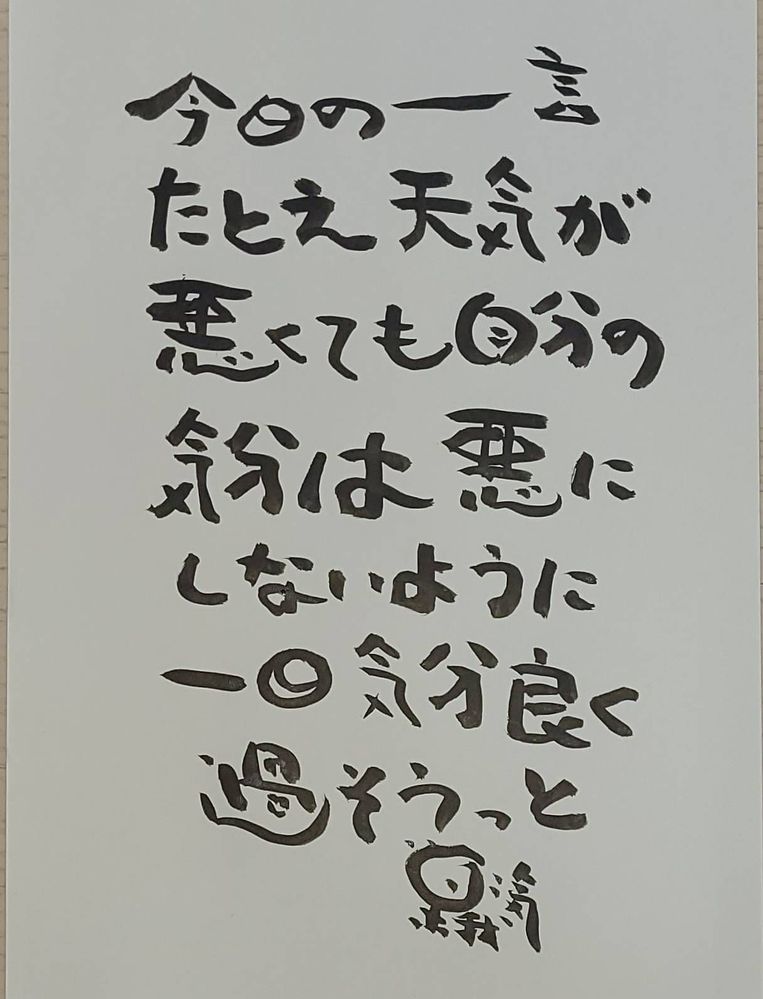 今日の一言
たとえ天気が
悪くても自分の
気分は悪に
しないように
一日気分良く
過そうっと